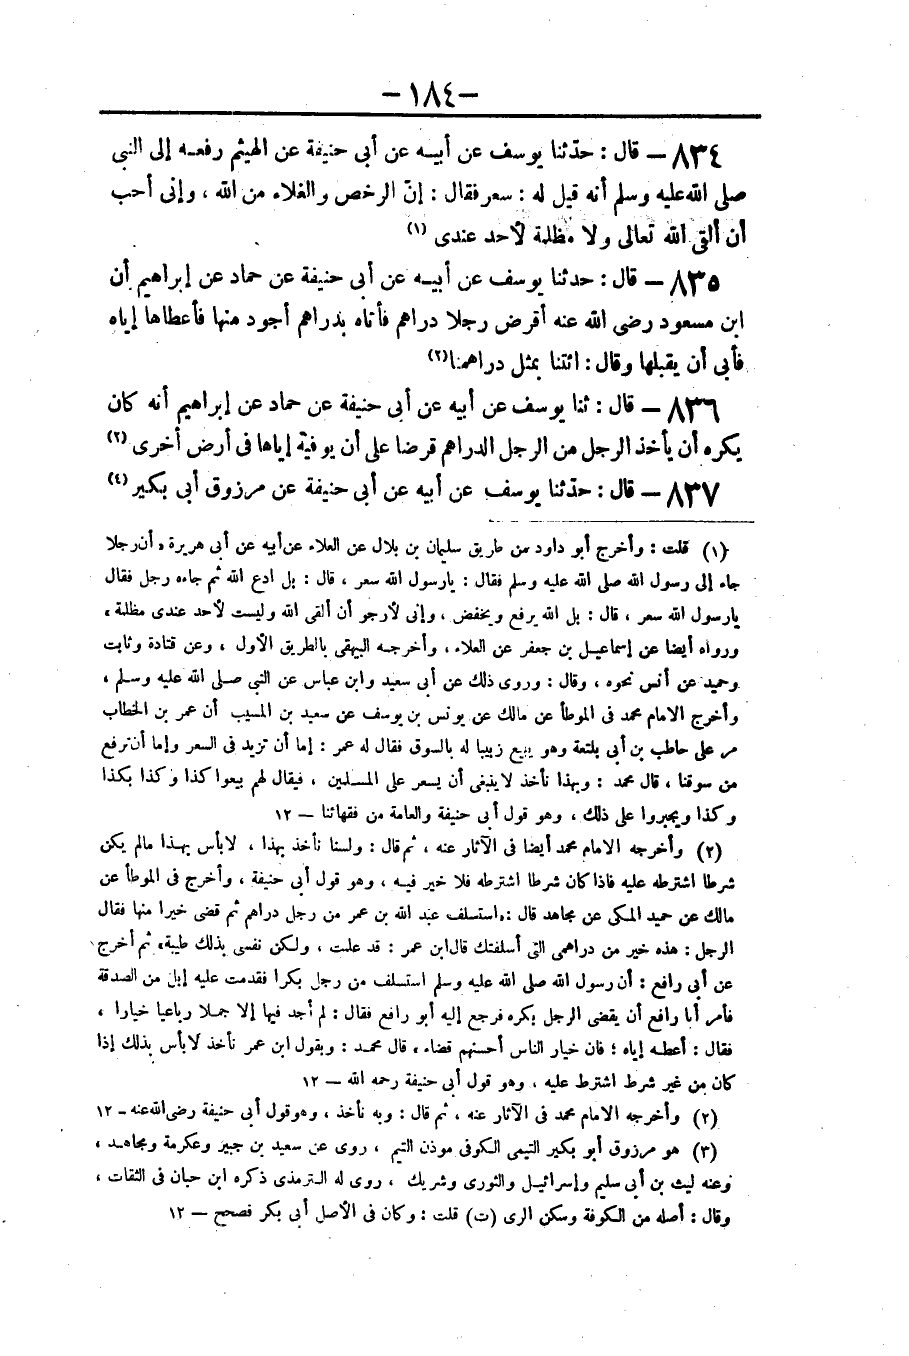 -١٨٤-
٨٣٤ - قال : حدّثنا يوسف عن أبيه عن أبى حنيفة عن الهيثم رفعه إلى النبى
صلى الله عليه وسلم أنه قيل له : سعر فقال : إنّ الرخص والغلاء من الله ، وإنى أحب
أن ألقى الله تعالى ولا مظلمة لأحد عندى (١)
٨٣٥ - قال : حدثنا يوسف عن أبيه عن أبى حنيفة عن حماد عن إبراهيم أن
ابن مسعود رضى الله عنه أقرض رجلا دراهم فأتاه بدراهم أجود منها فأعطاها إياه
فأبى أن يقبلها وقال : ائتنا بمثل دراهمنا (٢)
٨٣٦ - قال : ثنا يوسف عن أبيه عن أبى حنيفة عن حماد عن إبراهيم أنه كان
يكره أن يأخذ الرجل من الرجل الدراهم قرضا على أن يوفيه إياها فى أرض أخرى (٢)
٨٣٧ - قال : حدّثنا يوسف عن أبيه عن أبى حنيفة عن مرزوق أبى بكير (٤)
(١) قلت : وأخرج أبو داود من طريق سليمان بن بلال عن العلاء عن أبيه عن أبى هريرة ، أن رجلا
جاء إلى رسول الله صلى الله عليه وسلم فقال : يارسول الله سعر ، قال : بل ادع الله ثم جاءه رجل فقال
يارسول الله سعر ، قال : بل الله يرفع ويخفض ، وإنى لأرجو أن ألقى الله وليست لأحد عندى مظلمة ،
ورواه أيضا عن إسماعيل بن جعفر عن العلاء ، وأخرجه البيهقى بالطريق الأول ، وعن قتادة وثابت
وحميد عن أنس نحوه ، وقال : وروى ذلك عن أبى سعيد وابن عباس عن النبى صلى الله عليه وسلم ،
وأخرج الامام محمد فى الموطأ عن مالك عن يونس بن يوسف عن سعيد بن المسيب أن عمر بن الخطاب
مر على حاطب بن أبى بلتعة وهو يبيع زبيبا له بالسوق فقال له عمر : إما أن تزيد فى السعر وإما أن ترفع
من سوقنا ، قال محمد : وبهذا نأخذ لاينبغى أن يسعر على المسلمين ، فيقال لهم بيعوا كذا وكذا بكذا
وكذا ويجبروا على ذلك ، وهو قول أبى حنيفة والعامة من فقهائنا - ١٢
(٢) وأخرجه الامام محمد أيضا فى الآثار عنه ، ثم قال : ولسنا نأخذ بهذا ، لابأس بهذا مالم يكن
شرطا اشترطه عليه فاذا كان شرطا اشترطه فلا خير فيه ، وهو قول أبى حنيفة ، وأخرج فى الموطأ عن
مالك عن حميد المكى عن مجاهد قال : ،استسلف عبد الله بن عمر من رجل دراهم ثم قضى خيرا منها فقال
الرجل : هذه خير من دراهمى التى أسلفتك قال ابن عمر : قد علمت ، ولكن نفسى بذلك طيبة، ثم أخرج
عن أبى رافع : أن رسول الله صلى الله عليه وسلم استسلف من رجل بكرا فقدمت عليه إبل من الصدقة
فأمر أبا رافع أن يقضى الرجل بكره فرجع إليه أبو رافع فقال : لم أجد فيها إلا جملا رباعيا خيارا ،
فقال : أعطه إياه ؛ فان خيار الناس أحسنهم قضاء ، قال محمد : وبقول ابن عمر نأخذ لابأس بذلك إذا
كان من غير شرط اشترط عليه ، وهو قول أبى حنيفة رحمه الله - ١٢
(٢) وأخرجه الامام محمد فى الآثار عنه ، ثم قال : وبه نأخذ ، وهو قول أبى حنيفة رضى الله عنه - ١٢
(٣) هو مرزوق أبو بكير التيمى الكوفى موذن التيم ، روى عن سعيد بن جبير وعكرمة ومجاهد ،
وعنه ليث بن أبى سليم وإسرائيل والثورى وشريك ، روى له الترمذى ذكره ابن حبان فى الثقات ،
وقال : أصله من الكوفة وسكن الرى (ت) قلت : وكان فى الأصل أبى بكر فصحح - ١٢